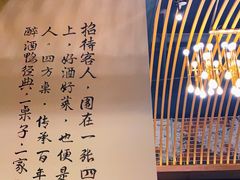 招待客人，围在一张四
上，好酒好菜，也便是
人，四方桌，传承百年
醉酒鸭经典，一桌子，一家